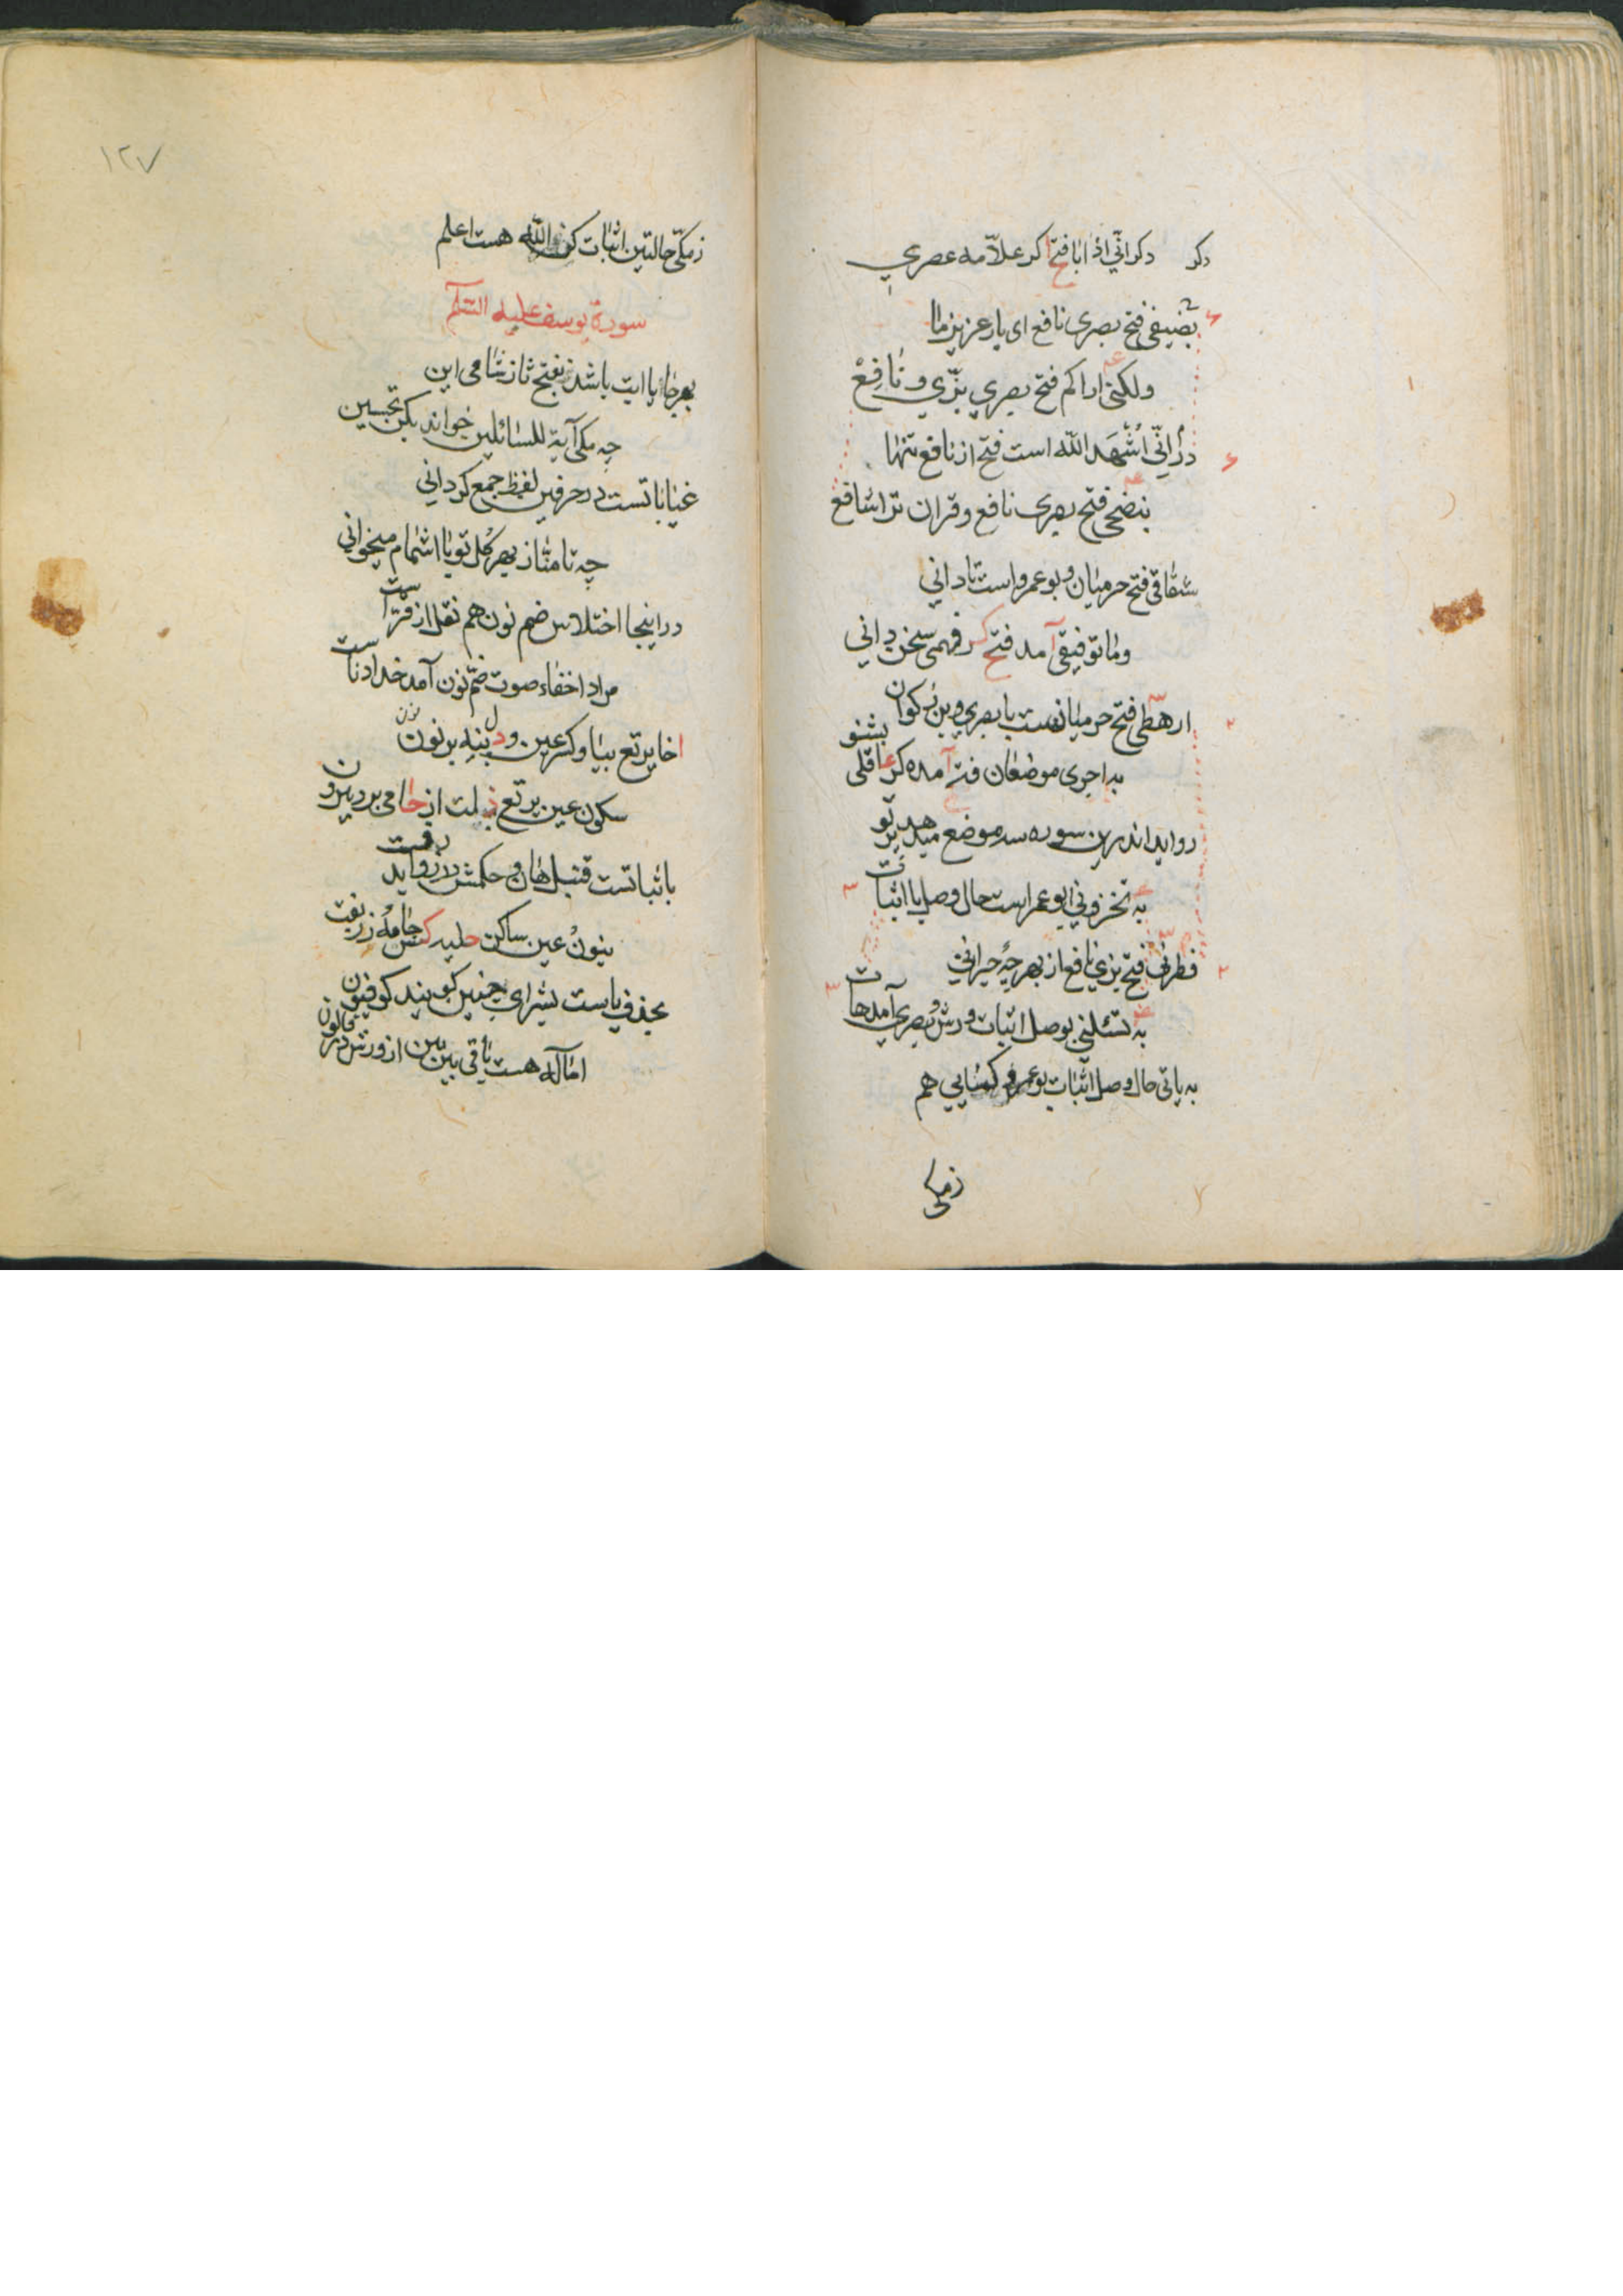 دکر دکر انّی اذ ابا فتح اکر علاّمه عصری
بضیفی فتح بصری نافع ای یار عزیز ما
ولکنّی اراکم فتح بصری بزّی و نافع
در انّی اشهد اللّه است فتح از نافع تنها
بنصحی فتح بصری نافع وقران ترا شافع
شقاقی فتح حرمیان و بوعمرو است تا دانی
وما توفیقی آمد فتح کر فهمی سخن دانی
ارهطی فتح حرمیانست با بصری وبن ذکوان بشنو
به اجری موضعان فتر آمده کر عاقلی
رواید اندرین سوره سه موضع میدهد پرتو
به تخزونی ابو عمر است حال وصل یا اثبات
فطرنی فتح بزی نافع از بهر چه حیرانی
به تسئلنی بوصل اثبات ورش و بصری آمد هات
به یاتی حال وصل اثبات بوعمر و کسایی هم
زمکی
۱۲۷
زمکّی حالتین اثبات کن واللّه هست اعلم
سورة یوسف علیه السّلام
بهر جا یا ابت باشد بفتح تا ز شامی این
چه مکی آیة للسائلین خواند بکن تحسین
غیاباتست در حرفین لفظ جمع کردانی
چه تامنّا ز بهر کل تو با اشمام میخوانی
در اینجا اختلاس ضم نون هم نقل از قرّاست
مراد اخفاء صوت ضمّ نون آمد خدا داناست
اخا یرتع بیا وکسر عین ودل بنه بر نون
سکون عین یرتع ذلت از حامی برد بیرون
باثباتست قنبل هان و حکمش در زواید رفت
بنون عین ساکن حلیه کنس جامهٔ زربفت
بحذف یاست بشرای چنین کویند کوفیون
اماله هست باقی بین بین از ورش